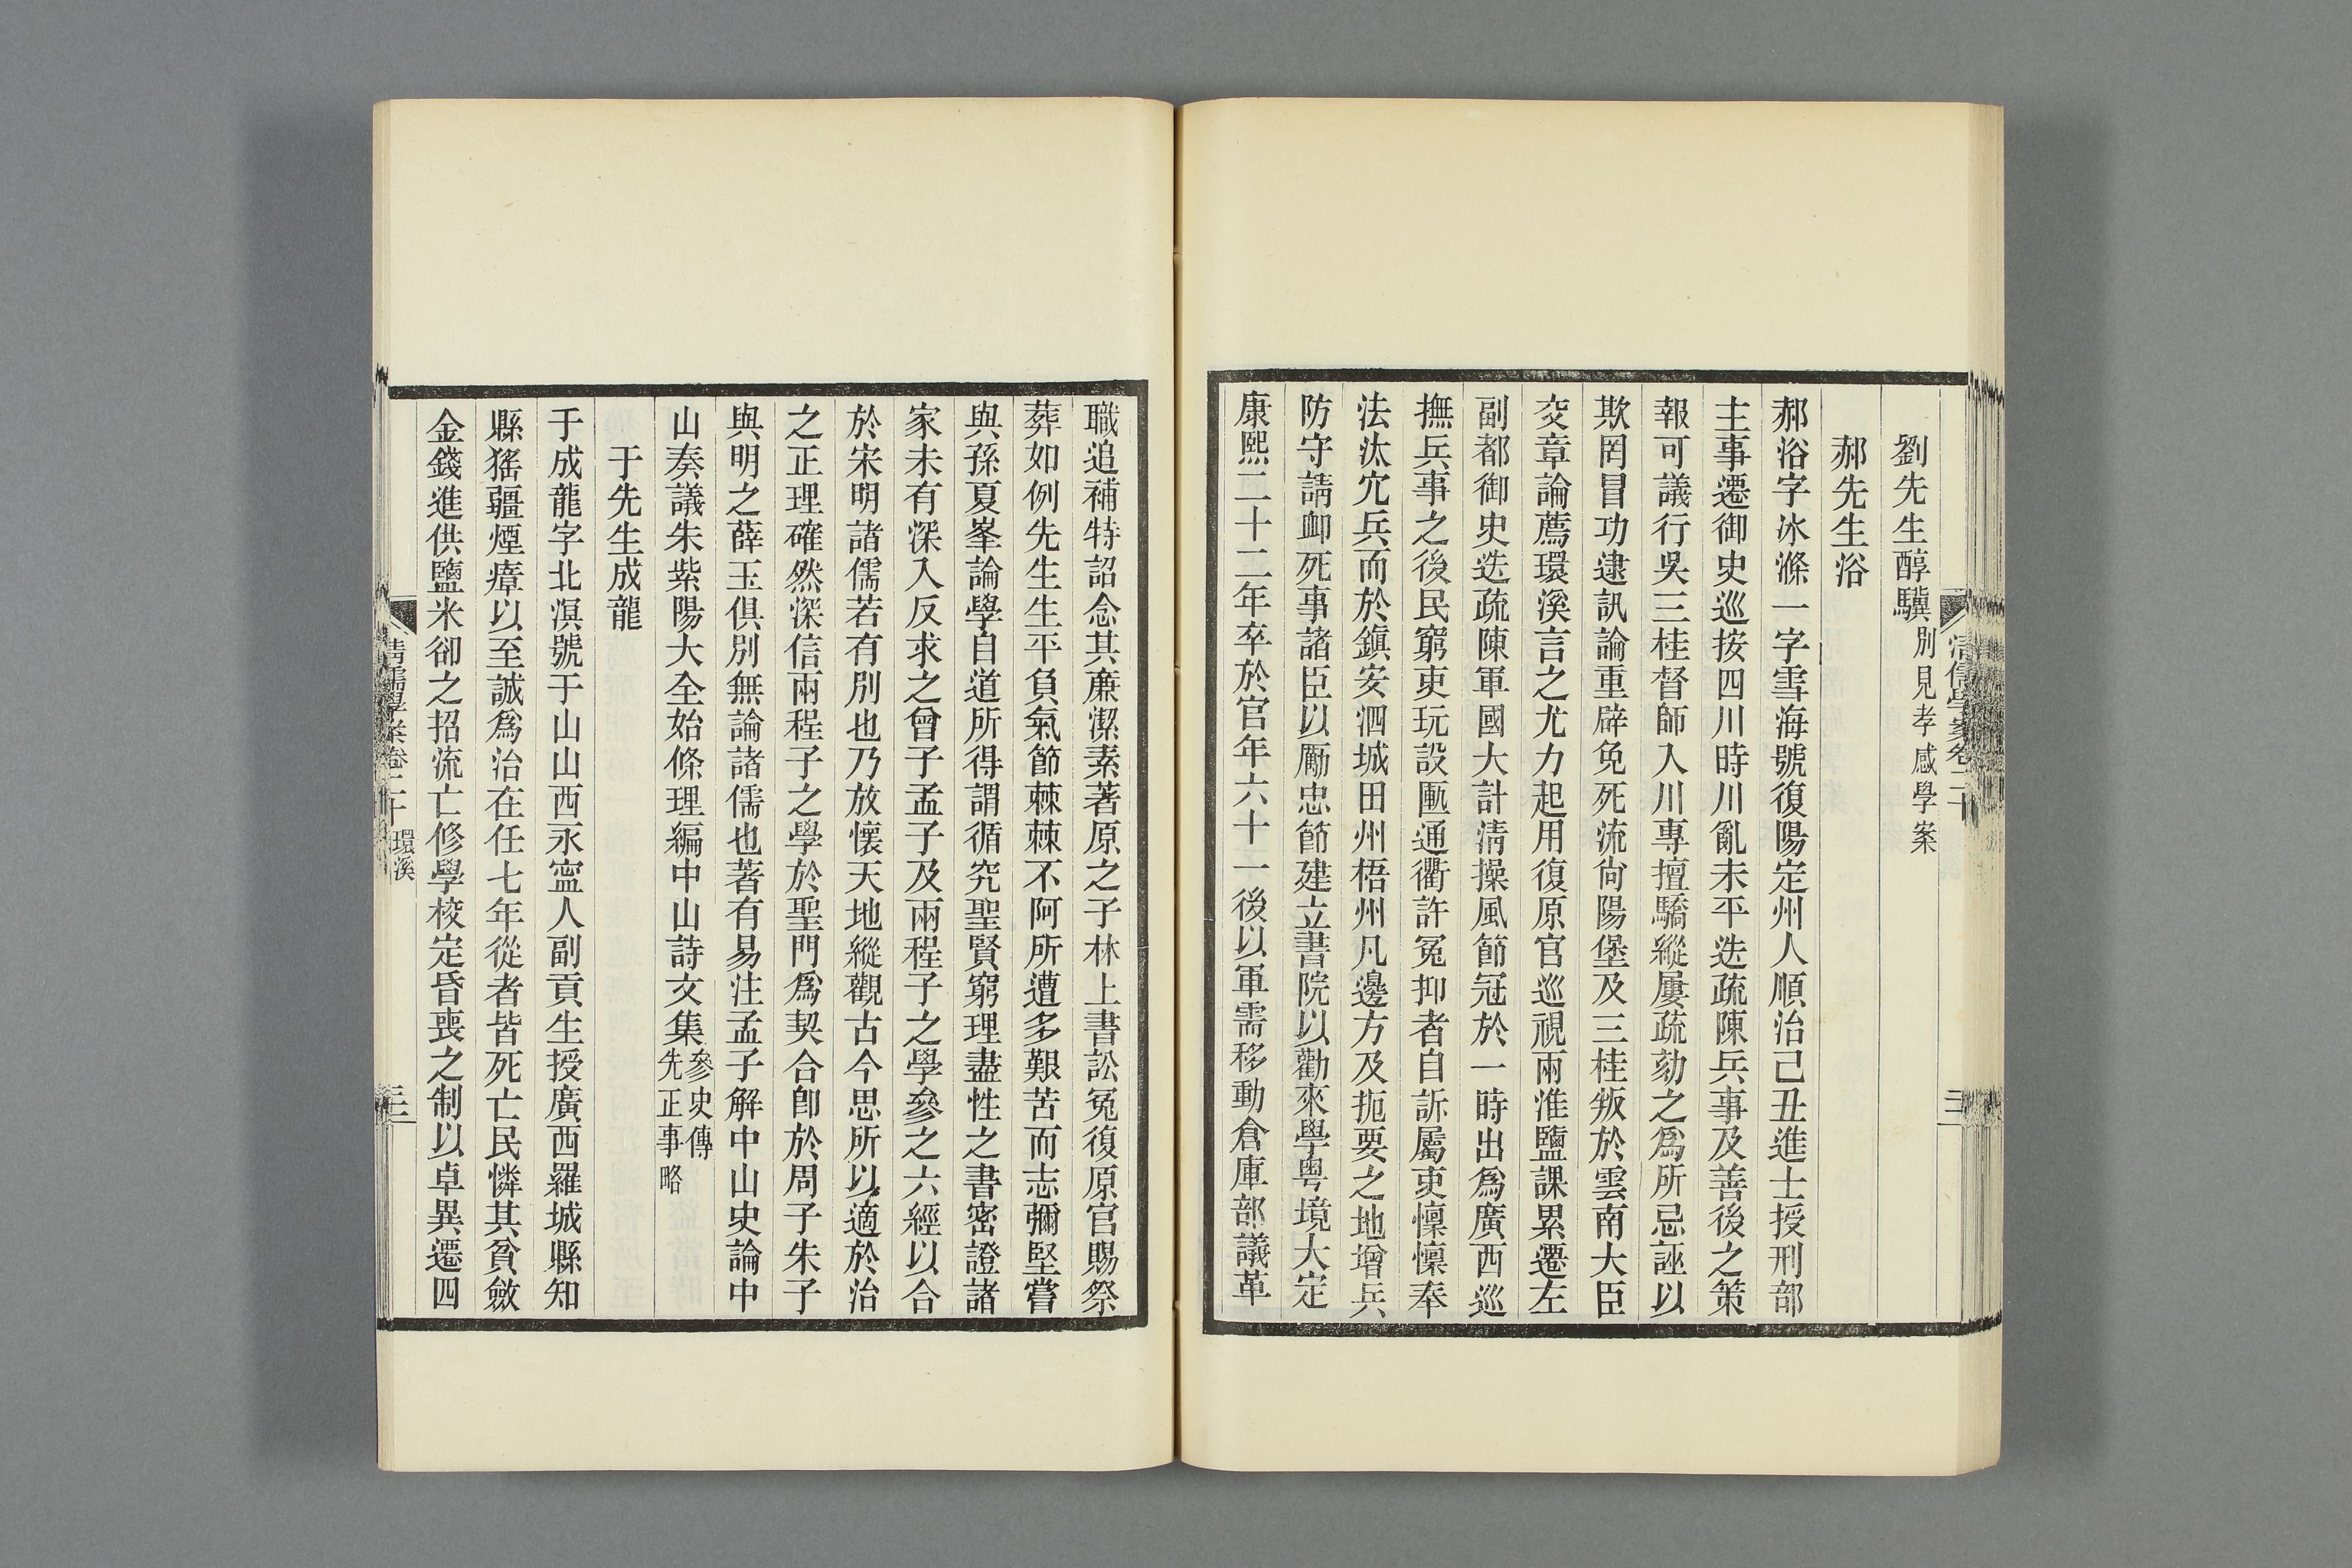 劉先生醇驥別見孝感學案
郝先生浴
郝浴字冰滌一字雪海號復陽定州人順治己丑進士授刑部
主事遷御史巡按四川時川亂未平迭疏陳兵事及善後之策
報可議行吳三桂督師入川專擅驕縱屢疏劾之爲所忌誣以
欺罔冒功逮訊論重辟免死流尙陽堡及三桂叛於雲南大臣
交章論薦環溪言之尤力起用復原官巡視兩淮鹽課累遷左
副都御史迭疏陳軍國大計淸操風節冠於一時出爲廣西巡
撫兵事之後民窮吏玩設匭通衢許冤抑者自訴屬吏懍懍奉
法汰宂兵而於鎭安泗城田州梧州凡邊方及扼要之地增兵
防守請卹死事諸臣以勵忠節建立書院以勸來學粤境大定
康熙二十二年卒於官年六十一後以軍需移動倉庫部議革
職追補特詔念其廉潔素著原之子林上書訟冤復原官賜祭
葬如例先生生平負氣節棘棘不阿所遭多艱苦而志彌堅嘗
與孫夏峯論學自道所得謂循究聖賢窮理盡性之書密證諸
家未有深入反求之曾子孟子及兩程子之學參之六經以合
於宋明諸儒若有別也乃放懷天地縱觀古今思所以適於治
之正理確然深信兩程子之學於聖門爲契合卽於周子朱子
與明之薛王俱別無論諸儒也著有易注孟子解中山史論中
山奏議朱紫陽大全始條理編中山詩文集參史傳先正事略
于先生成龍
于成龍字北溟號于山山西永寍人副貢生授廣西羅城縣知
縣猺疆煙瘴以至誠爲治在任七年從者皆死亡民憐其貧斂
金錢進供鹽米卻之招流亡修學校定昏喪之制以卓異遷四
淸儒學案卷二十 環溪